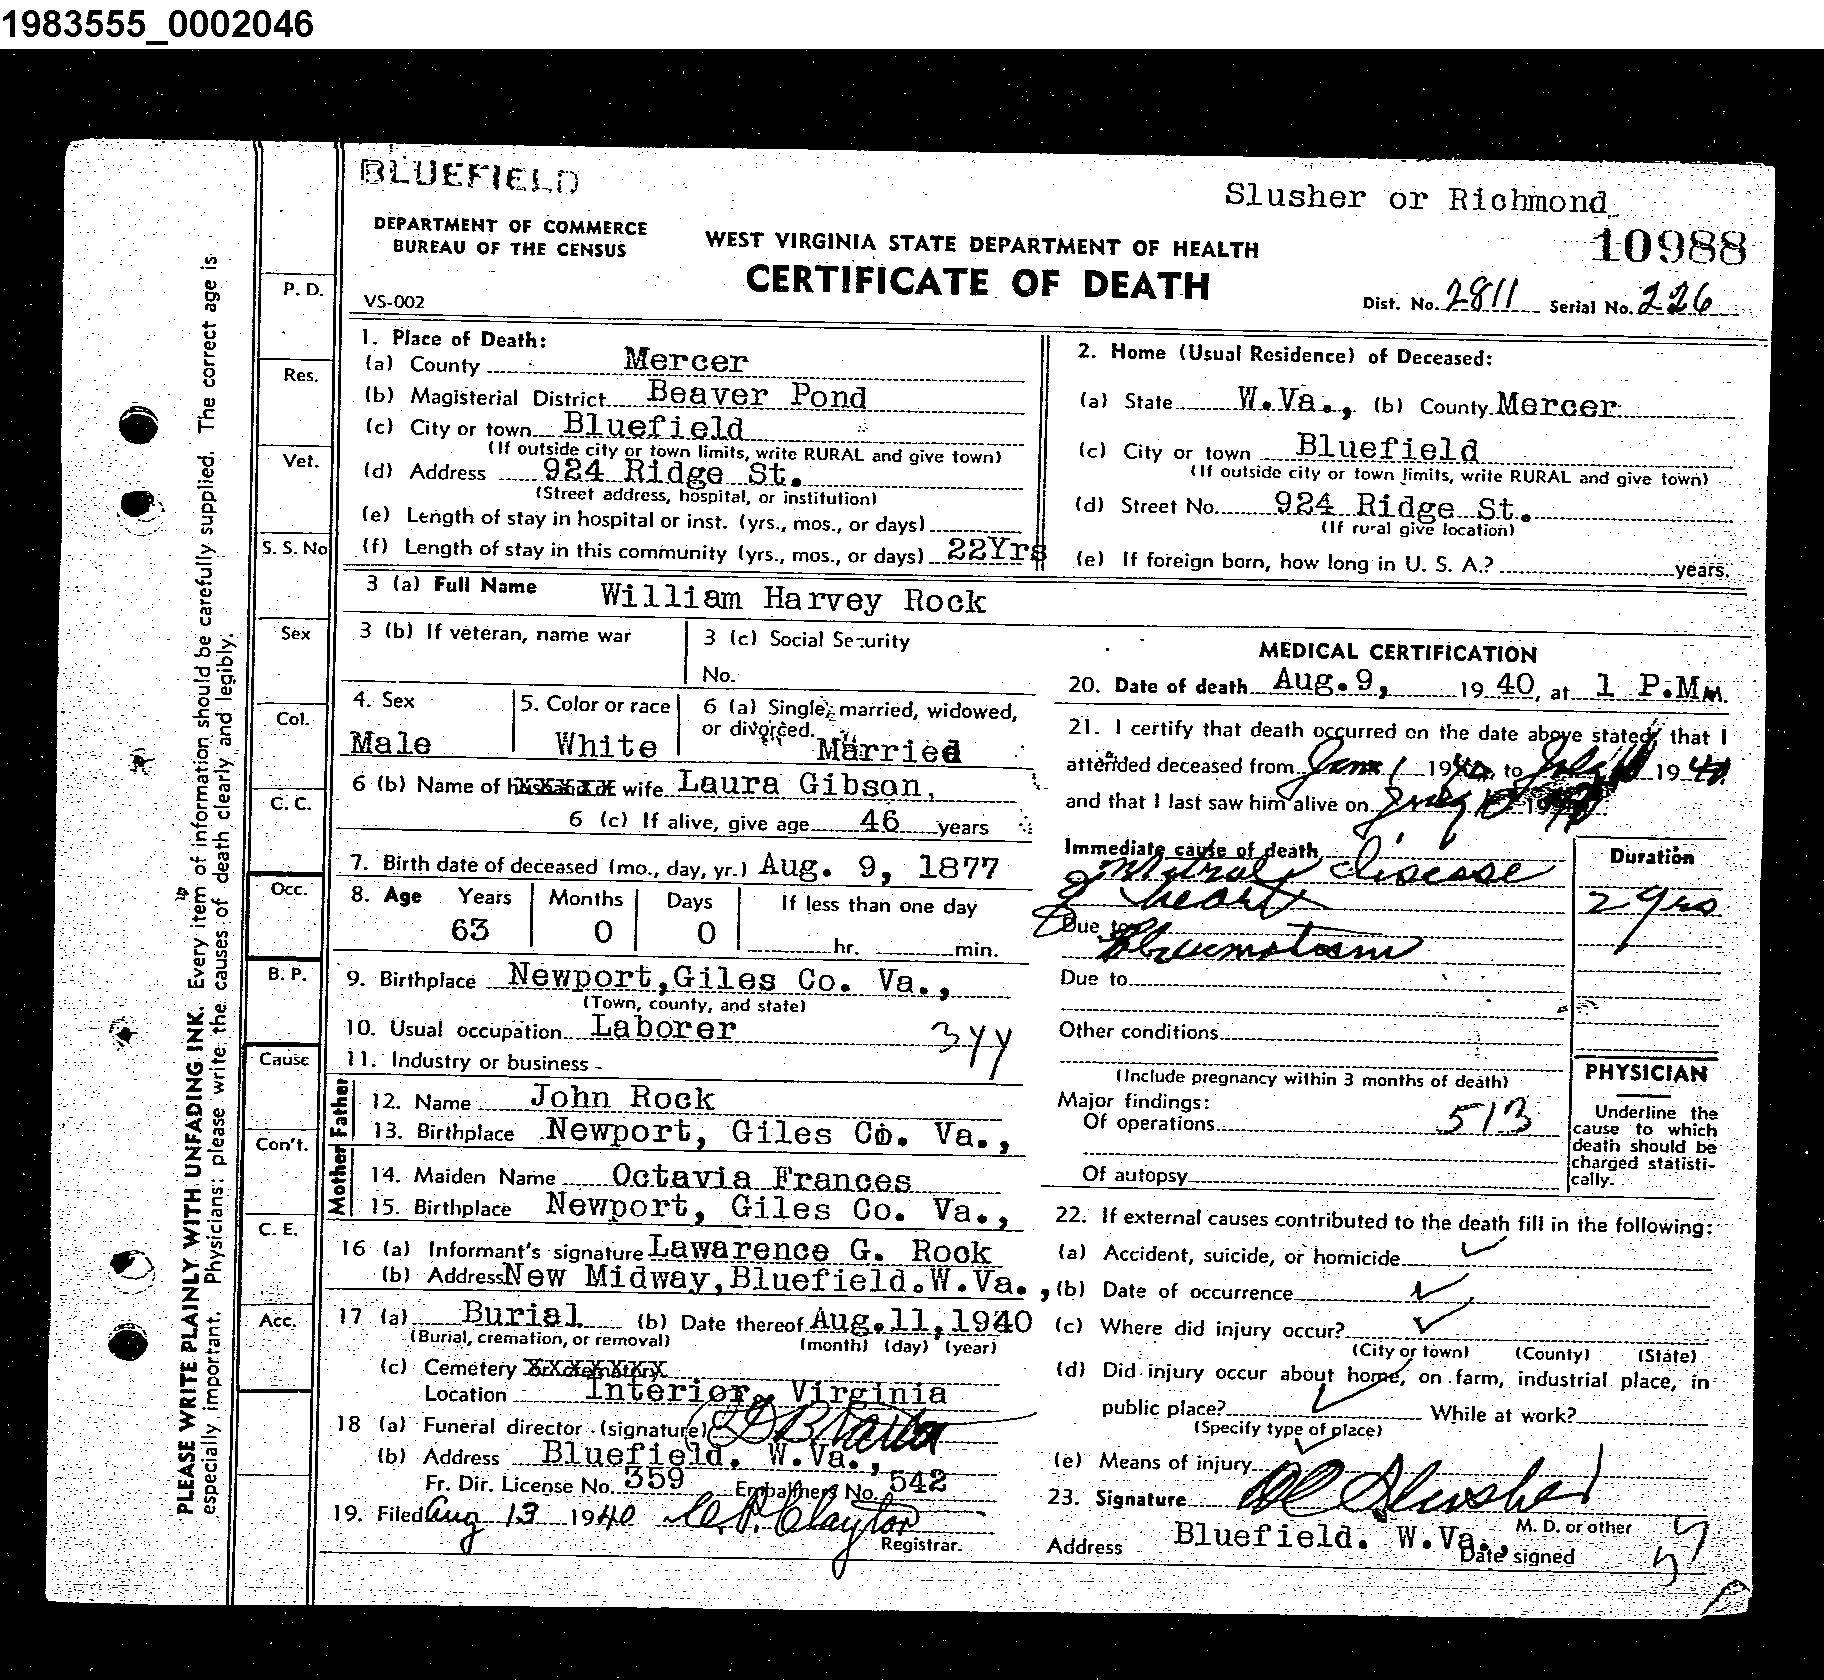 1983555_0002046
BLUEFIELD
Slusher or Richmond
DEPARTMENT OF COMMERCE
BUREAU OF THE CENSUS
WEST VIRGINIA STATE DEPARTMENT OF HEALTH
10988
CERTIFICATE OF DEATH
VS-002
Dist. No. 2811 Serial No. 226
PLEASE WRITE PLAINLY WITH UNFADING INK. Every item of information should be carefully supplied. The correct age is
especially important. Physicians: please write the causes of death clearly and legibly.
P. D.
Res.
Vet.
S. S. No
Sex
Col.
C. C.
Occ.
B. P.
Cause
Con't.
C. E.
Acc.
1. Place of Death:
(a) County Mercer
(b) Magisterial District Beaver Pond
(c) City or town Bluefield
(If outside city or town limits, write RURAL and give town)
(d) Address 924 Ridge St.
(Street address, hospital, or institution)
(e) Length of stay in hospital or inst. (yrs., mos., or days)
(f) Length of stay in this community (yrs., mos., or days) 22Yrs
2. Home (Usual Residence) of Deceased:
(a) State W.Va., (b) County Mercer
(c) City or town Bluefield
(If outside city or town limits, write RURAL and give town)
(d) Street No. 924 Ridge St.
(If rural give location)
(e) If foreign born, how long in U. S. A.? years.
3 (a) Full Name William Harvey Rock
3 (b) If veteran, name war
3 (c) Social Security
No.
4. Sex
Male
5. Color or race
White
6 (a) Single, married, widowed,
or divorced.
Married
6 (b) Name of husband or wife Laura Gibson,
6 (c) If alive, give age 46 years
7. Birth date of deceased (mo., day, yr.) Aug. 9, 1877
8. Age Years Months Days If less than one day
63 0 0 hr. min.
9. Birthplace Newport,Giles Co. Va.,
(Town, county, and state)
10. Usual occupation Laborer
11. Industry or business -
Father
12. Name John Rock
13. Birthplace Newport, Giles Co. Va.,
Mother
14. Maiden Name Octavia Frances
15. Birthplace Newport, Giles Co. Va.,
16 (a) Informant's signature Lawarence G. Rock
(b) Address New Midway,Bluefield.W.Va.,
17 (a) Burial (b) Date thereof Aug.11,1940
(Burial, cremation, or removal) (month) (day) (year)
(c) Cemetery or crematory
Location Interior, Virginia
18 (a) Funeral director (signature)
(b) Address Bluefield. W.Va.,
Fr. Dir. License No. 359 Embalmers No. 542
19. Filed Aug 13 1940 Clayton
Registrar.
MEDICAL CERTIFICATION
20. Date of death Aug.9, 19 40, at 1 P.M m.
21. I certify that death occurred on the date above stated; that I
attended deceased from 19 to July 19 40
and that I last saw him alive on 19
Immediate cause of death Mitral disease
of heart
Duration
2 yrs
Due to
Rheumatism
Due to
Other conditions
(Include pregnancy within 3 months of death)
Major findings:
Of operations 513
Of autopsy
PHYSICIAN
Underline the
cause to which
death should be
charged statisti-
cally.
22. If external causes contributed to the death fill in the following:
(a) Accident, suicide, or homicide
(b) Date of occurrence
(c) Where did injury occur?
(City or town) (County) (State)
(d) Did injury occur about home, on farm, industrial place, in
public place? While at work?
(Specify type of place)
(e) Means of injury
23. Signature Slusher
M. D. or other
Address Bluefield. W.Va., Date signed